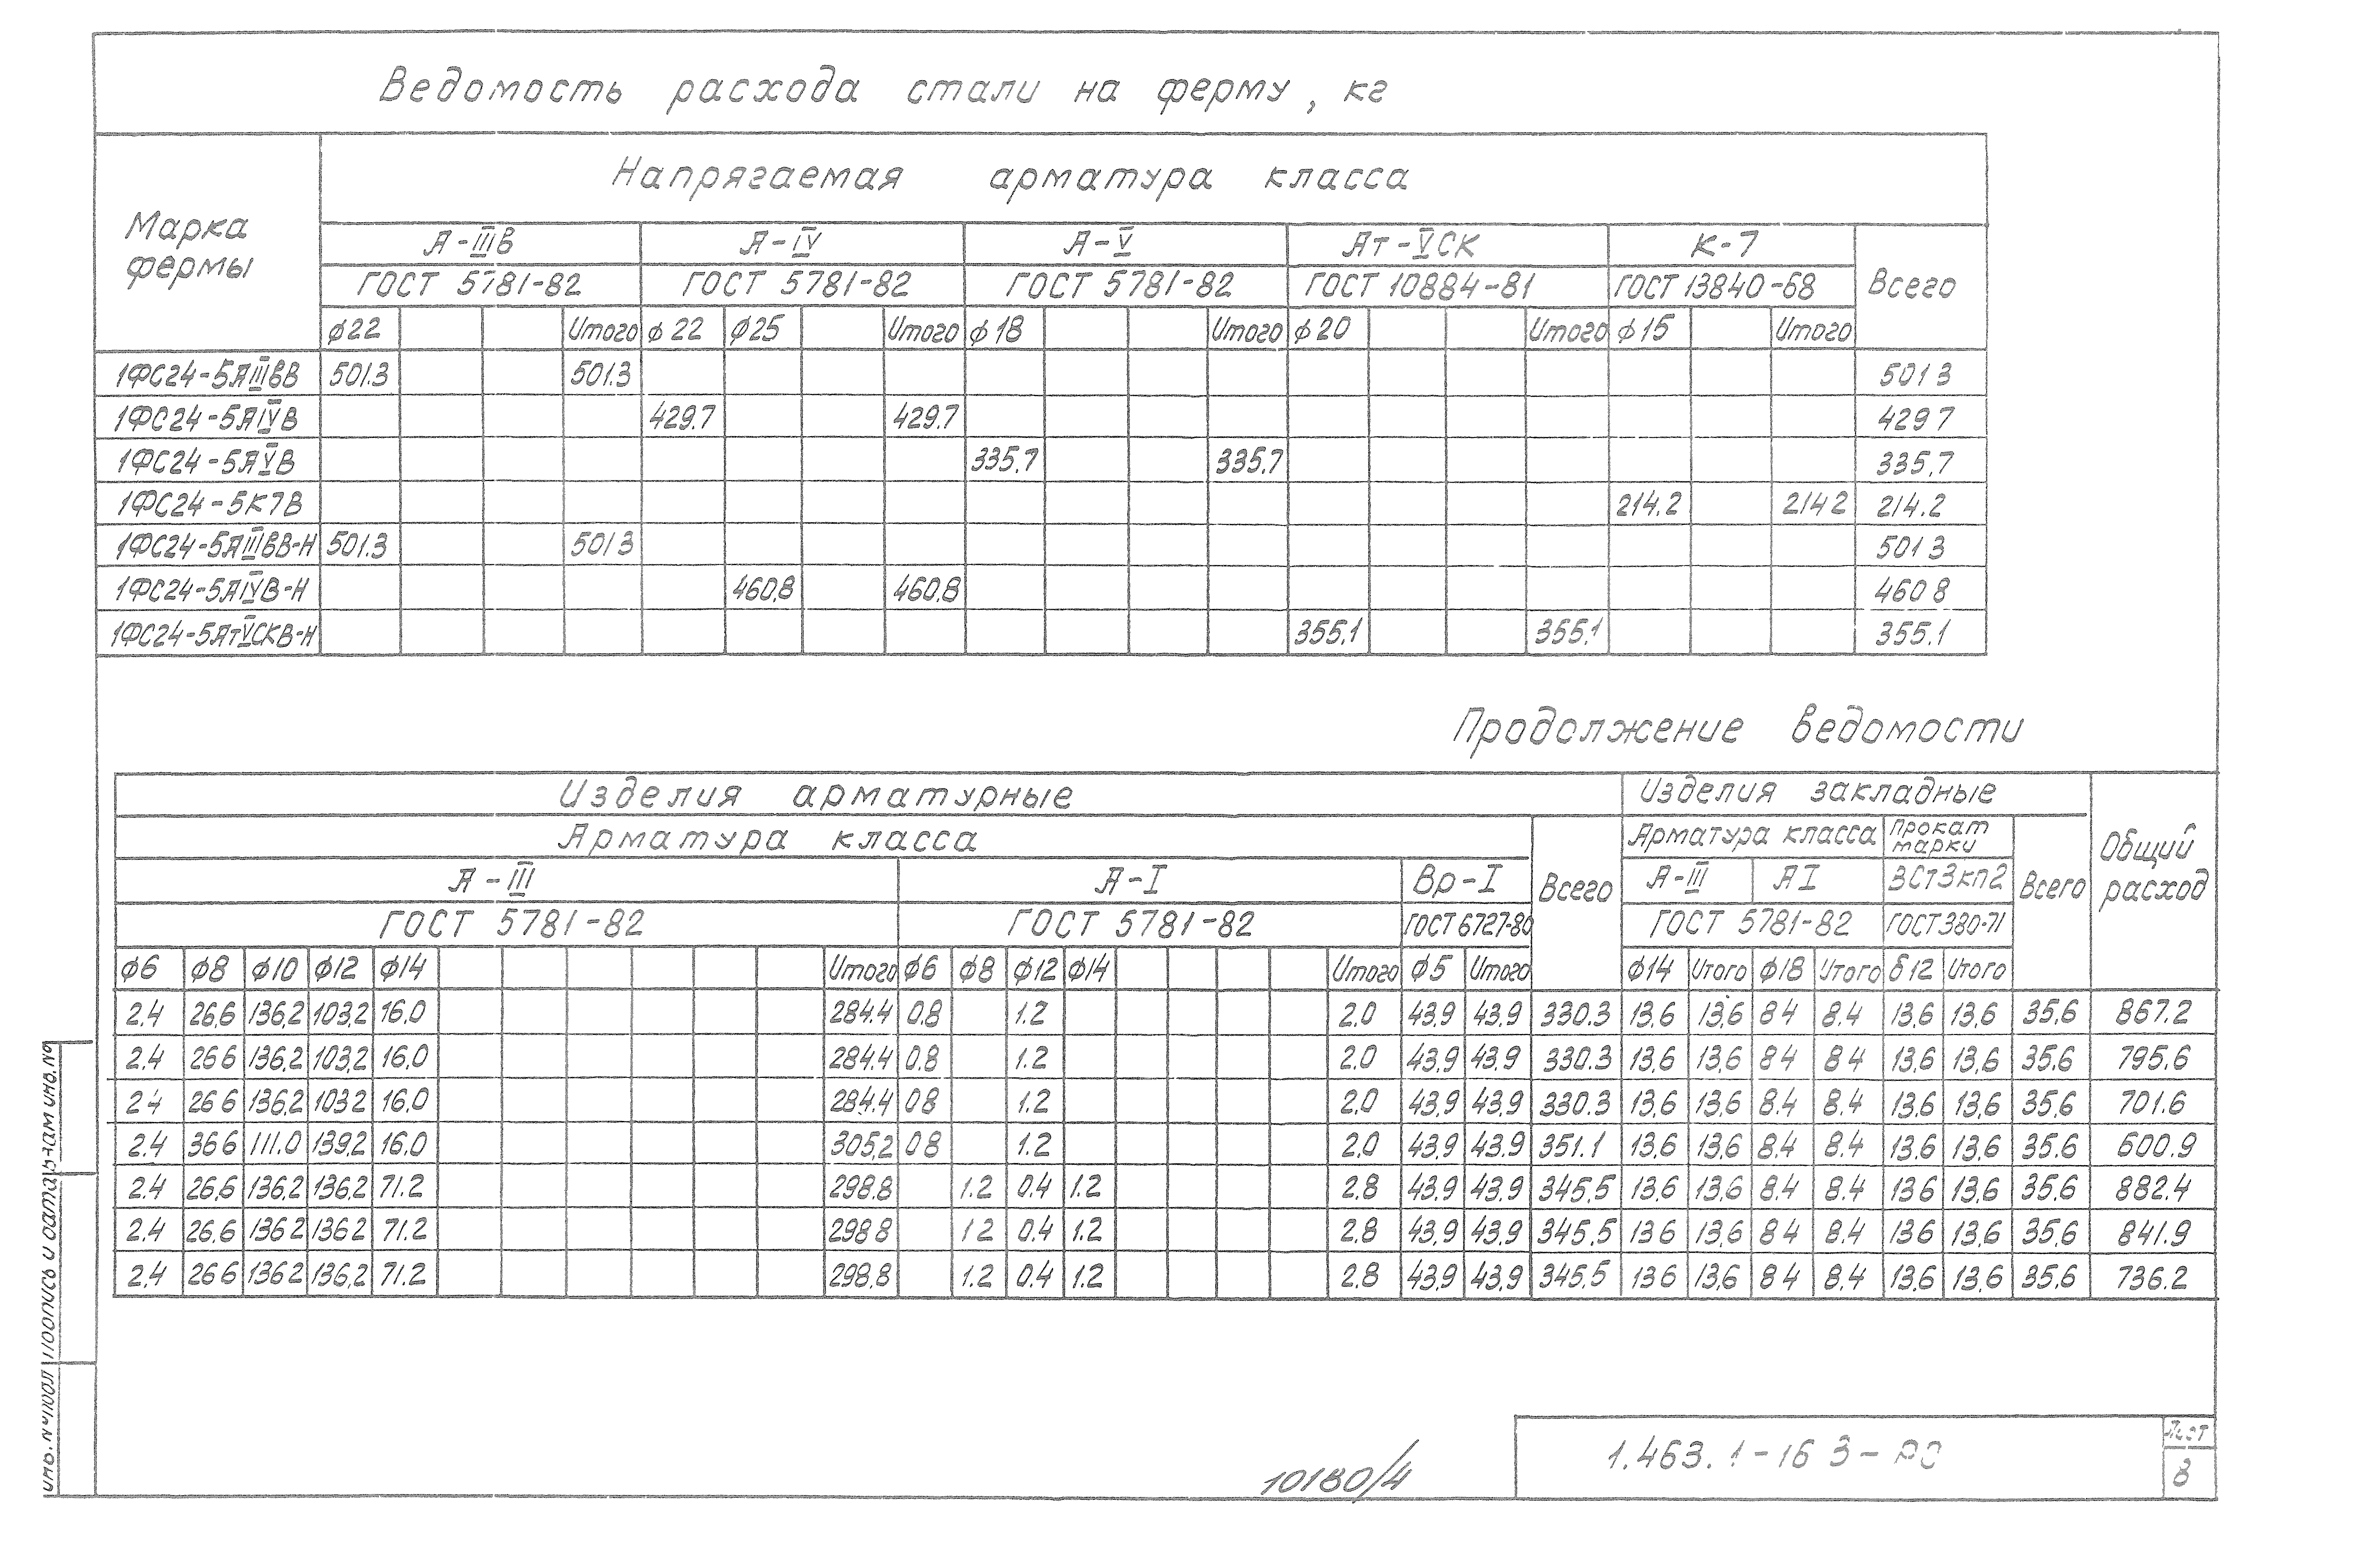 Ведомость расхода стали на ферму, кг
Марка фермы
Напрягаемая арматура класса
А-IIIв А-IV А-V Ат-VСК К-7 Всего
ГОСТ 5781-82 ГОСТ 5781-82 ГОСТ 5781-82 ГОСТ 10884-81 ГОСТ 13840-68
ф22 Итого ф22 ф25 Итого ф18 Итого ф20 Итого ф15 Итого
1ФС24-5АIIIвВ 501.3 501.3 501 3
1ФС24-5АIVВ 429.7 429.7 429 7
1ФС24-5АVВ 335,7 335,7 335,7
1ФС24-5К7В 214.2 214 2 214.2
1ФС24-5АIIIвВ-Н 501.3 501 3 501 3
1ФС24-5АIVВ-Н 460,8 460,8 460 8
1ФС24-5АтVСКВ-Н 355,1 355,1 355.1
Продолжение ведомости
Изделия арматурные Изделия закладные Общий расход
Арматура класса Всего Арматура класса Прокат марки Всего
А-III А-I Вр-I А-III АI ВСт3кп2
ГОСТ 5781-82 ГОСТ 5781-82 ГОСТ 6727-80 ГОСТ 5781-82 ГОСТ 380-71
ф6 ф8 ф10 ф12 ф14 Итого ф6 ф8 ф12 ф14 Итого ф5 Итого ф14 Итого ф18 Итого δ12 Итого
2.4 26,6 136,2 103,2 16,0 284.4 0.8 1.2 2.0 43,9 43,9 330.3 13,6 13,6 8 4 8.4 13,6 13,6 35,6 867.2
2.4 26 6 136,2 103,2 16,0 284.4 0.8 1.2 2.0 43,9 43.9 330.3 13,6 13,6 8 4 8 4 13,6 13,6 35.6 795.6
2 4 26 6 136,2 103 2 16,0 284.4 0 8 1.2 2,0 43,9 43,9 330.3 13,6 13,6 8.4 8.4 13.6 13,6 35,6 701.6
2.4 36 6 111.0 139,2 16.0 305,2 0 8 1.2 2,0 43,9 43.9 351.1 13,6 13,6 8.4 8.4 13.6 13,6 35.6 600.9
2.4 26,6 136,2 136,2 71.2 298.8 1.2 0.4 1.2 2.8 43,9 43.9 345,5 13,6 13,6 8.4 8.4 13 6 13,6 35,6 882.4
2.4 26.6 136 2 136 2 71.2 298 8 1 2 0.4 1.2 2.8 43,9 43,9 345.5 13 6 13,6 8 4 8.4 13 6 13,6 35,6 841.9
2.4 26 6 136 2 136,2 71.2 298.8 1.2 0.4 1.2 2.8 43,9 43,9 345.5 13 6 13,6 8 4 8.4 13.6 13,6 35,6 736.2
Инв.№подл Подпись и дата Взам инв.№
10180/4
1.463.1-16 3-РС
Лист
8